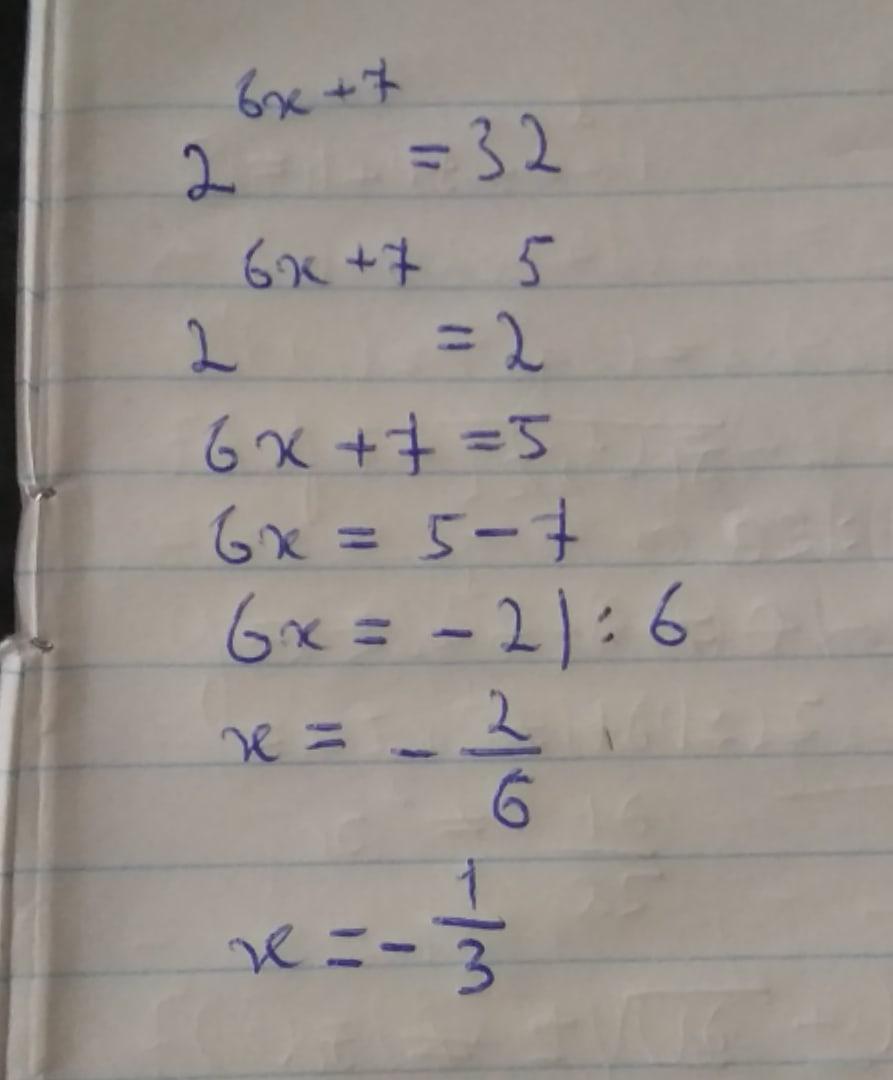 2^{6x+7} = 32
2^{6x+7} = 2^{5}
6x + 7 = 5
6x = 5 - 7
6x = - 2 | : 6
x = - \frac{2}{6}
x = - \frac{1}{3}